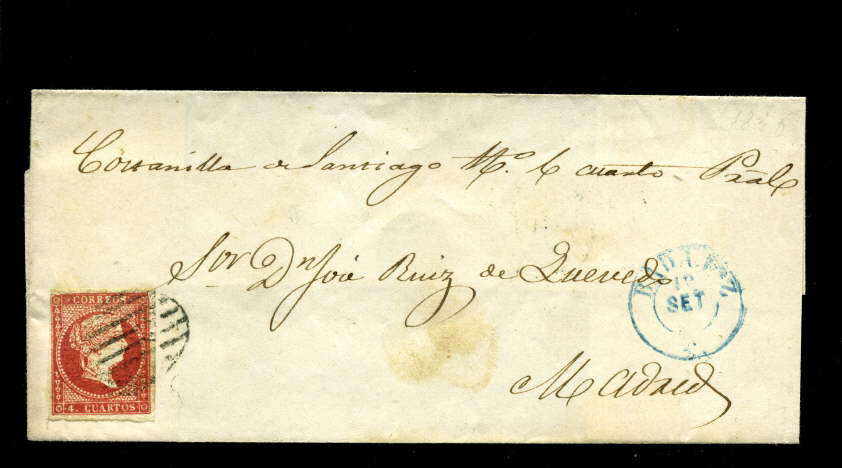 Costanilla de Santiago Nº 6 cuarto Pral
Sor Dn José Ruiz de Quevedo
Madrid
CORREOS
4. CUARTOS
SET